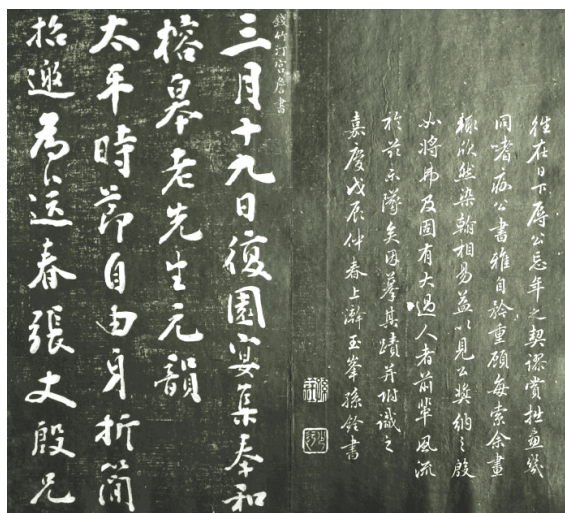 往在日下辱公忘年之契謬賞拙畫幾
同嗜痂公書雅自矜重顧每索余畫
輒欣然染翰相易益以見公獎納之殷
如將弗及固有大過人者前輩風流
於茲未墜矣因摹其蹟并附識之
嘉慶戊辰仲春上澣玉峯孫銓書
錢竹汀宮詹書
三月十九日復園宴集奉和
榕皋老先生元韻
太平時節自由身折簡
招邀為送春張丈殷兄